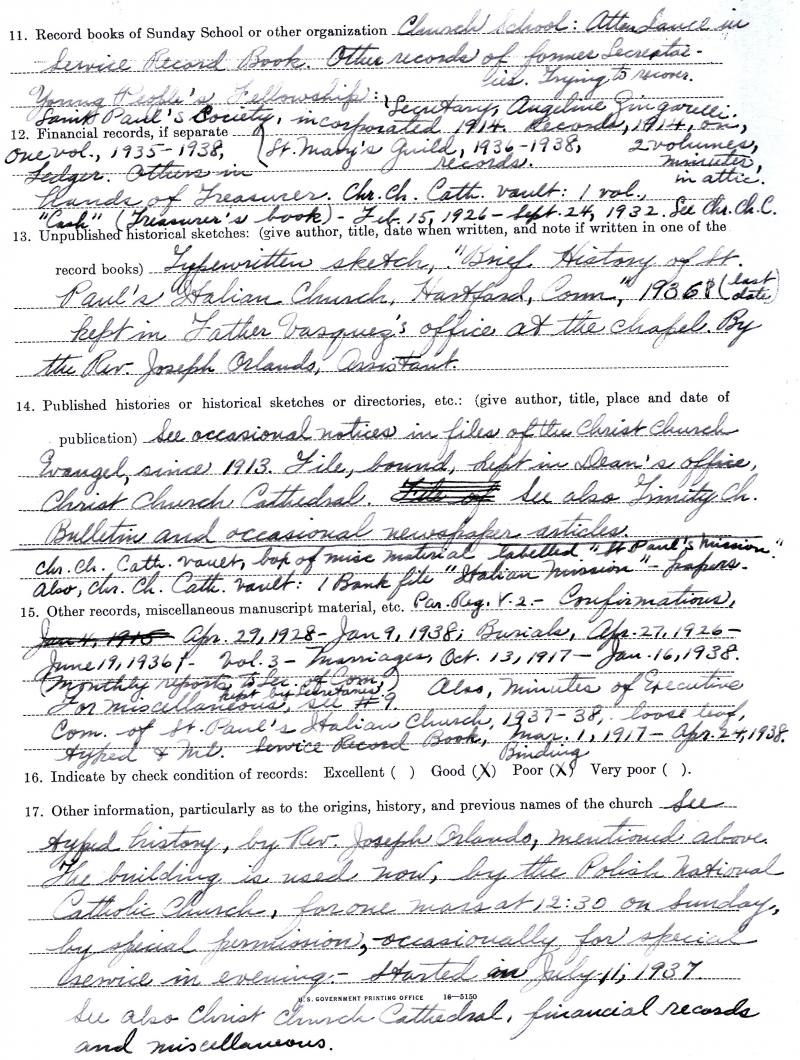 11. Record books of Sunday School or other organization Church School: Attendance in
Service Record Book. Other records of former Secretar-
ies. Trying to recover.
Young People's Fellowship: Secretary, Angeline
Saint Paul's Society, incorporated 1914. Records, 1914, on,
12. Financial records, if separate
One vol., 1935-1938, St. Mary's Guild, 1936-1938, 2 volumes,
records. minutes,
Ledger. Others in in attic.
Hands of Treasurer. Chr. Ch. Cath. vault: 1 vol.,
"Cash" (Treasurer's book) - Feb. 15, 1926 - Sept. 24, 1932. See Chr. Ch. C.
13. Unpublished historical sketches: (give author, title, date when written, and note if written in one of the
record books) Typewritten sketch, "Brief History of St.
Paul's Italian Church, Hartford, Conn", 1936? (last date)
kept in Father Vasquez's office at the chapel. By
the Rev. Joseph Orlando, Assistant.
14. Published histories or historical sketches or directories, etc.: (give author, title, place and date of
publication) See occasional notices in files of the Christ Church
Evangel, since 1913. File, bound, kept in Dean's office,
Christ Church Cathedral. File of See also Trinity Ch.
Bulletin and occasional newspaper articles.
Chr. Ch. Cath. vault, box of misc material labelled "St Paul's Mission."
Also, Chr. Ch. Cath. vault: 1 Bank file "Italian Mission" - papers.
15. Other records, miscellaneous manuscript material, etc. Par. Reg. V. 2. - Confirmations,
Jan 4, 1915 Apr. 29, 1928 - Jan 9, 1938; Burials, Apr. 27, 1926 -
June 19, 1936 - Vol. 3 - Marriages, Oct. 13, 1917 - Jan. 16, 1938.
(Monthly reports to Sec. of Com,
kept by Secretaries)
For miscellaneous, see #9. Also, Minutes of Executive
Com. of St. Paul's Italian Church, 1937-38, loose leaf,
typed & Service Record Book, Mar. 1, 1917 - Apr. 24, 1938.
Binding
16. Indicate by check condition of records: Excellent ( ) Good (X) Poor (X) Very poor ( ).
17. Other information, particularly as to the origins, history, and previous names of the church See
typed history, by Rev. Joseph Orlando, mentioned above.
The building is used now, by the Polish National
Catholic Church, for one mass at 12:30 on Sunday,
by special permission, - occasionally for special
service in evening. - Started in July 11, 1937.
U. S. GOVERNMENT PRINTING OFFICE 16-5150
See also Christ Church Cathedral, financial records
and miscellaneous.